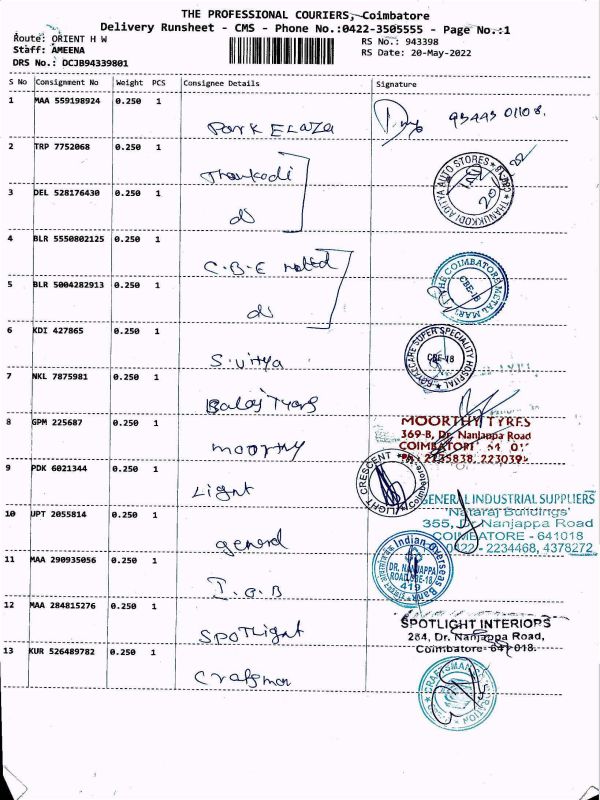 THE PROFESSIONAL COURIERS, Coimbatore
Delivery Runsheet - CMS - Phone No.:0422-3505555 - Page No.:1
Route: ORIENT H W
RS No.: 943398
Staff: AMEENA
RS Date: 20-May-2022
DRS No.: DCJB94339801
S No Consignment No Weight PCS Consignee Details Signature
1 MAA 559198924 0.250 1
Park Elaza 93443 01108.
2 TRP 7752068 0.250 1
Thankodi
THANUKKODI ADITYA AUTO STORES
3 DEL 528176430 0.250 1
4 BLR 5550802125 0.250 1
C.B.E metal
THE COIMBATORE METAL MART
CBE-18
5 BLR 5004282913 0.250 1
6 KDI 427865 0.250 1
EYECARE SUPER SPECIALITY HOSPITAL
CBE-18
7 NKL 7875981 0.250 1
Balaj
8 GPM 225687 0.250 1
moorthy
MOORTHY TYRES
369-B, Dr. Nanjappa Road
COIMBATORE
2235838, 223039
9 PDK 6021344 0.250 1
Light
LIGHT CRESCENT
Coimbatore
10 UPT 2055814 0.250 1
general
GENERAL INDUSTRIAL SUPPLIERS
'Nataraj Buildings'
355, Dr. Nanjappa Road
COIMBATORE - 641018
0422 - 2234468, 4378272
11 MAA 290935056 0.250 1
I.O.B
Indian Overseas Bank
DR. NANJAPPA
ROAD, CBE-18
419
12 MAA 284815276 0.250 1
SPOTLight
SPOTLIGHT INTERIORS
264, Dr. Nanjappa Road,
Coimbatore- 641 018.
13 KUR 526489782 0.250 1
Crafsman
CRAFTSMAN